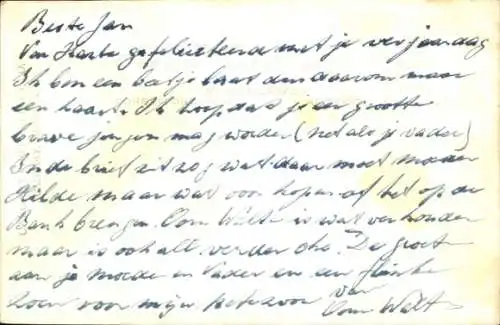 Beste Jan
Van Harte gefeliciteerd met je verjaardag
Ik ben een beetje laat dan daarom maar
een kaart. Ik hoop dat je een grootte
brave jongen mag worden (net als je vader)
In de brief zit nog wat daar moet moeder
Hilde maar wat voor kopen of het op de
Bank brengen. Oom Walt is wat verkouden
maar is ook alt verder oke. De groet
aan je moeder en Vader en een flinke
zoen voor mijn petezoon van
Oom Walt